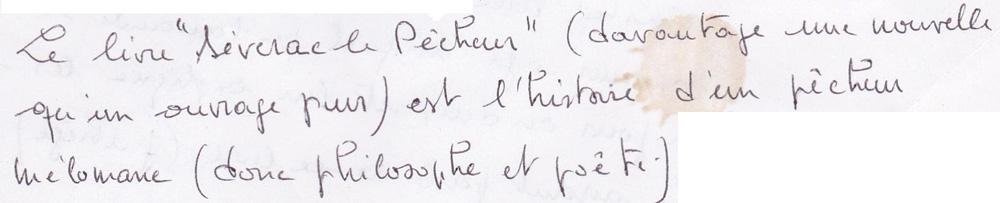 Le livre "Séverac le Pêcheur" (davantage une nouvelle
qu'un ouvrage pur) est l'histoire d'un pêcheur
mélomane (donc philosophe et poête.)